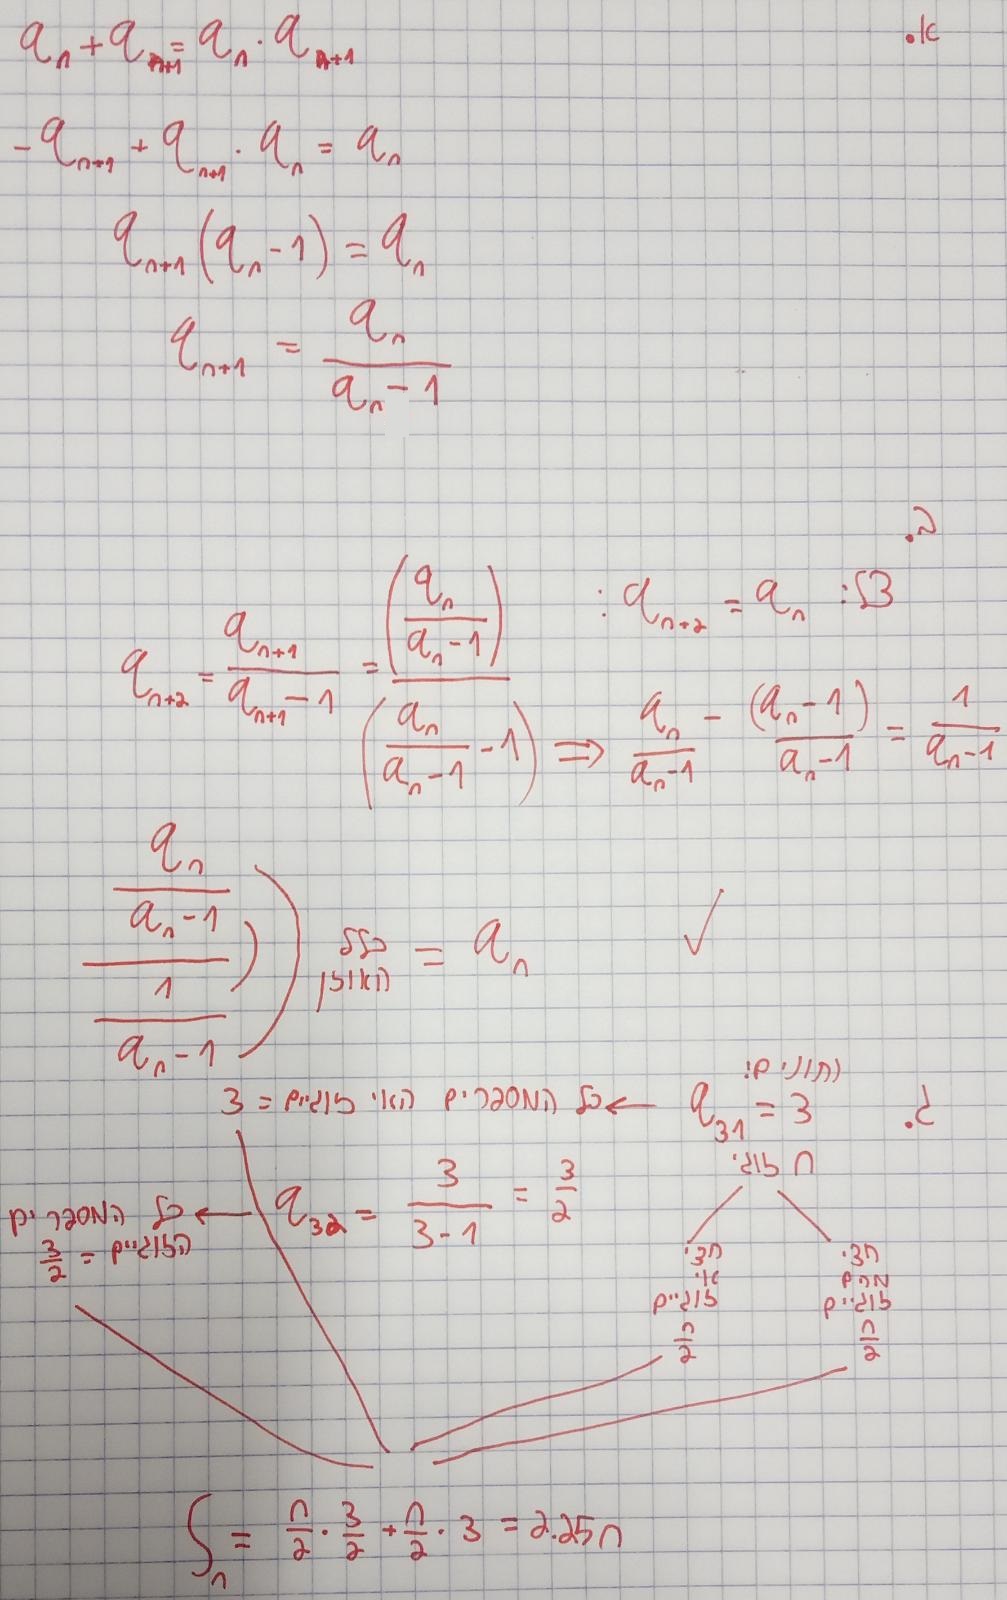 א.
a_n + a_{n+1} = a_n · a_{n+1}
-a_{n+1} + a_{n+1} · a_n = a_n
a_{n+1}(a_n - 1) = a_n
a_{n+1} = \frac{a_n}{a_n - 1}
ב.
צ"ל: a_{n+2} = a_n :
a_{n+2} = \frac{a_{n+1}}{a_{n+1} - 1} = \frac{(\frac{a_n}{a_n - 1})}{(\frac{a_n}{a_n - 1} - 1)} ⇒ \frac{a_n}{a_n - 1} - \frac{(a_n - 1)}{a_n - 1} = \frac{1}{a_n - 1}
\frac{\frac{a_n}{a_n - 1}}{\frac{1}{a_n - 1}} כלל האוזן = a_n ✓
ג.
נתונים:
a_{31} = 3 ← כל המספרים האי זוגיים = 3
n זוגי
a_{32} = \frac{3}{3 - 1} = \frac{3}{2} ← כל המספרים
הזוגיים = \frac{3}{2}
חצי
מהם
זוגיים
\frac{n}{2}
חצי
אי
זוגיים
\frac{n}{2}
S_n = \frac{n}{2} · \frac{3}{2} + \frac{n}{2} · 3 = 2.25n